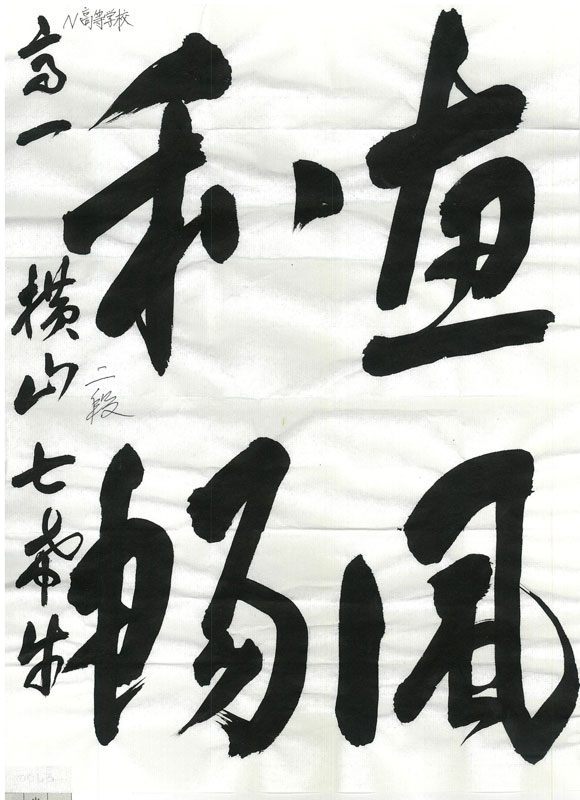 恵風
和暢
N高等学校
高一 横山 七希生
二段